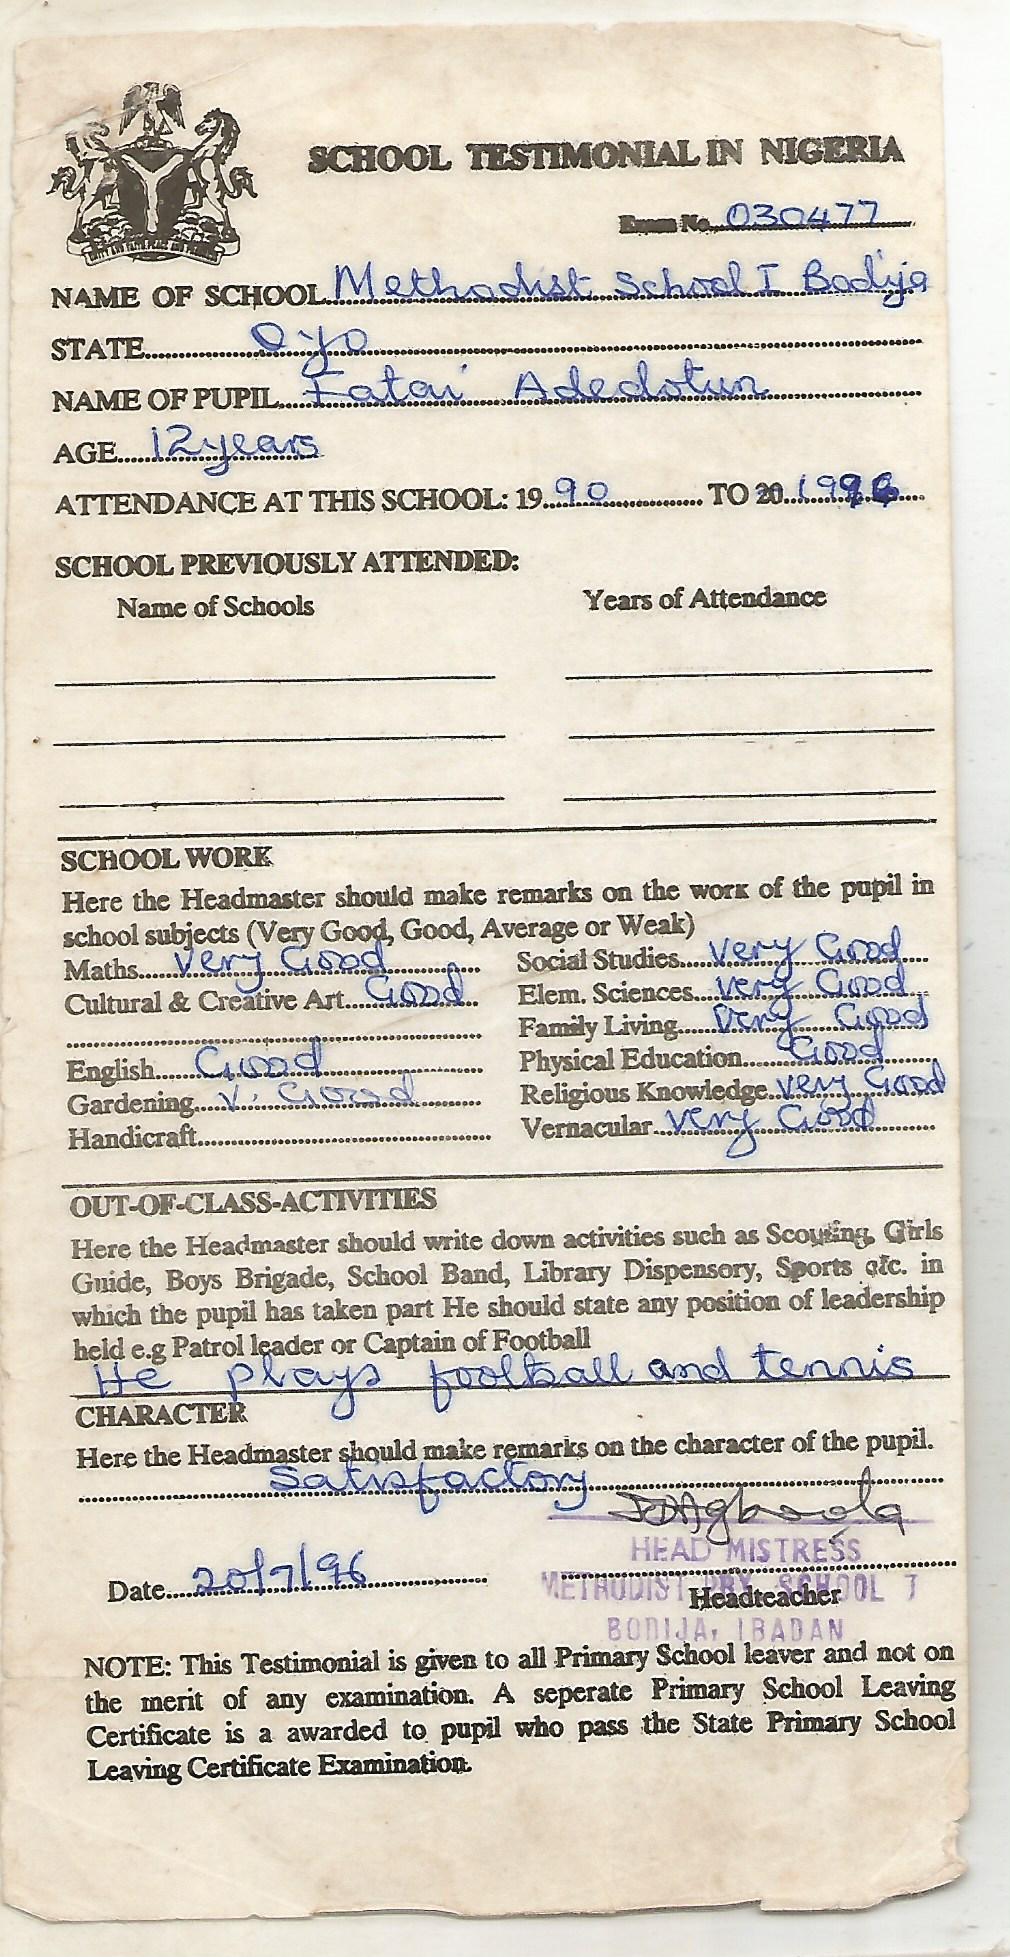 SCHOOL TESTIMONIAL IN NIGERIA
Exam No. 030477
NAME OF SCHOOL Methodist School I Bodija
STATE Oyo
NAME OF PUPIL Fatai Adedotun
AGE 12 years
ATTENDANCE AT THIS SCHOOL: 19 90 TO 20 1996
SCHOOL PREVIOUSLY ATTENDED:
Name of Schools Years of Attendance
SCHOOL WORK
Here the Headmaster should make remarks on the work of the pupil in
school subjects (Very Good, Good, Average or Weak)
Maths Very Good Social Studies Very Good
Cultural & Creative Art Good Elem. Sciences Very Good
Family Living Very Good
English Good Physical Education Good
Gardening V. Good Religious Knowledge Very Good
Handicraft Vernacular Very Good
OUT-OF-CLASS-ACTIVITIES
Here the Headmaster should write down activities such as Scouting, Girls
Guide, Boys Brigade, School Band, Library Dispensory, Sports etc. in
which the pupil has taken part He should state any position of leadership
held e.g Patrol leader or Captain of Football
He plays football and tennis
CHARACTER
Here the Headmaster should make remarks on the character of the pupil.
Satisfactory
HEAD MISTRESS
Date 20/7/96 METHODIST PRY. SCHOOL
Headteacher
BODIJA, IBADAN
NOTE: This Testimonial is given to all Primary School leaver and not on
the merit of any examination. A seperate Primary School Leaving
Certificate is a awarded to pupil who pass the State Primary School
Leaving Certificate Examination.